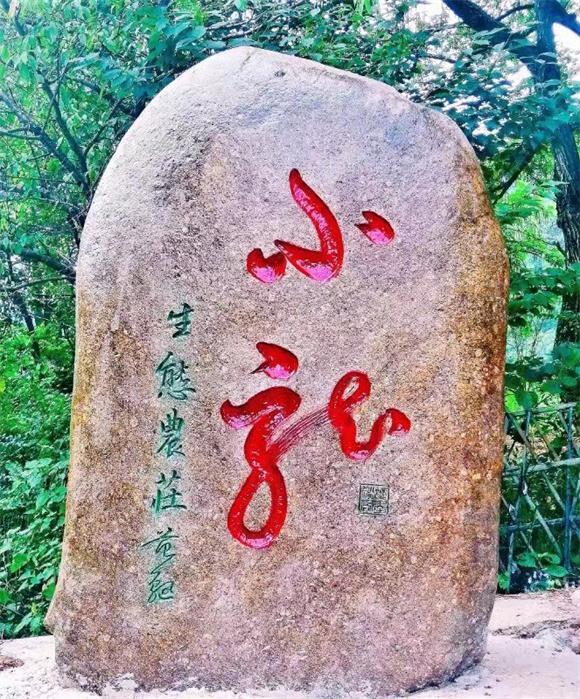 小龍
生態農莊